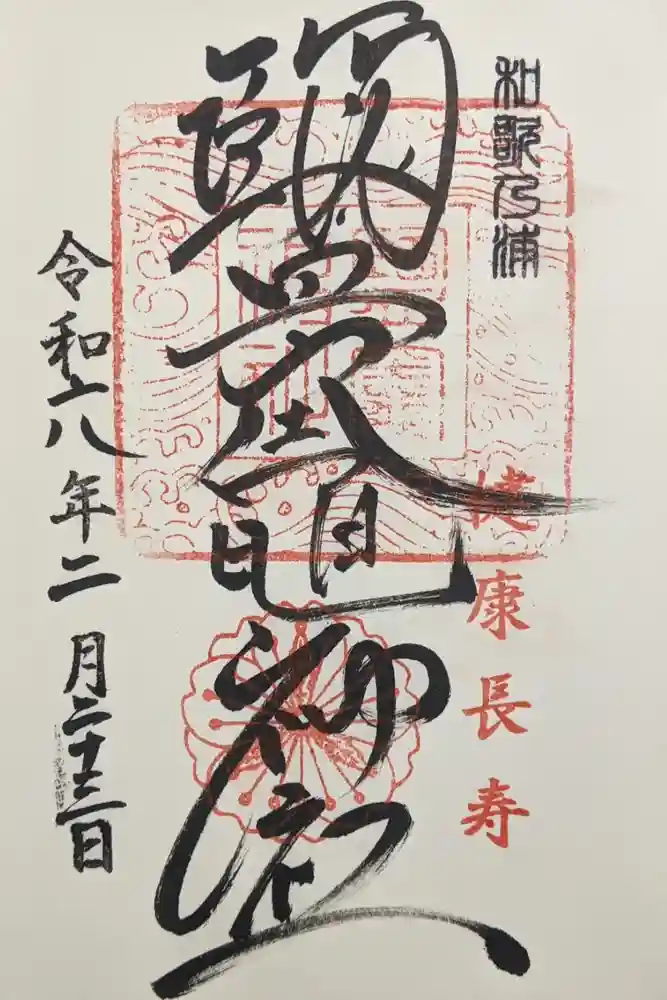 和歌乃浦
健康長寿
鹽竈神社
令和六年二月二十三日